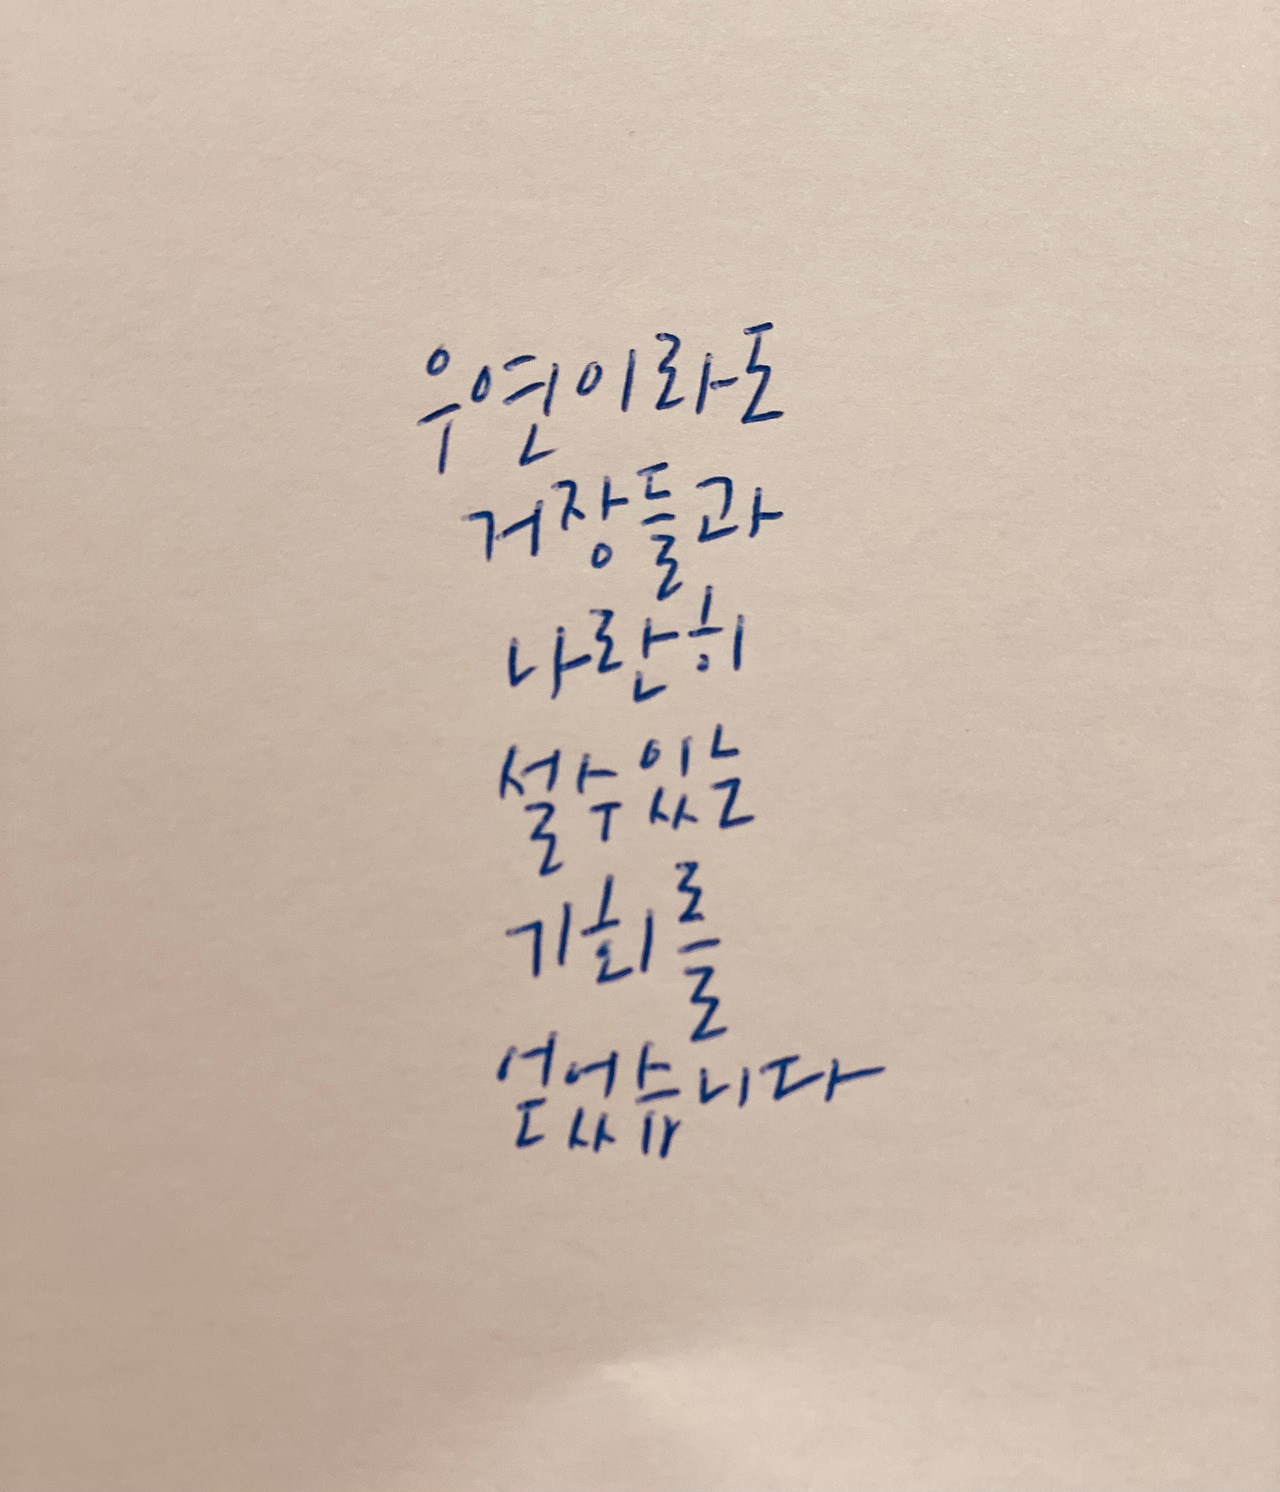 우연이라도
거장들과
나란히
설 수 있는
기회를
얻었습니다